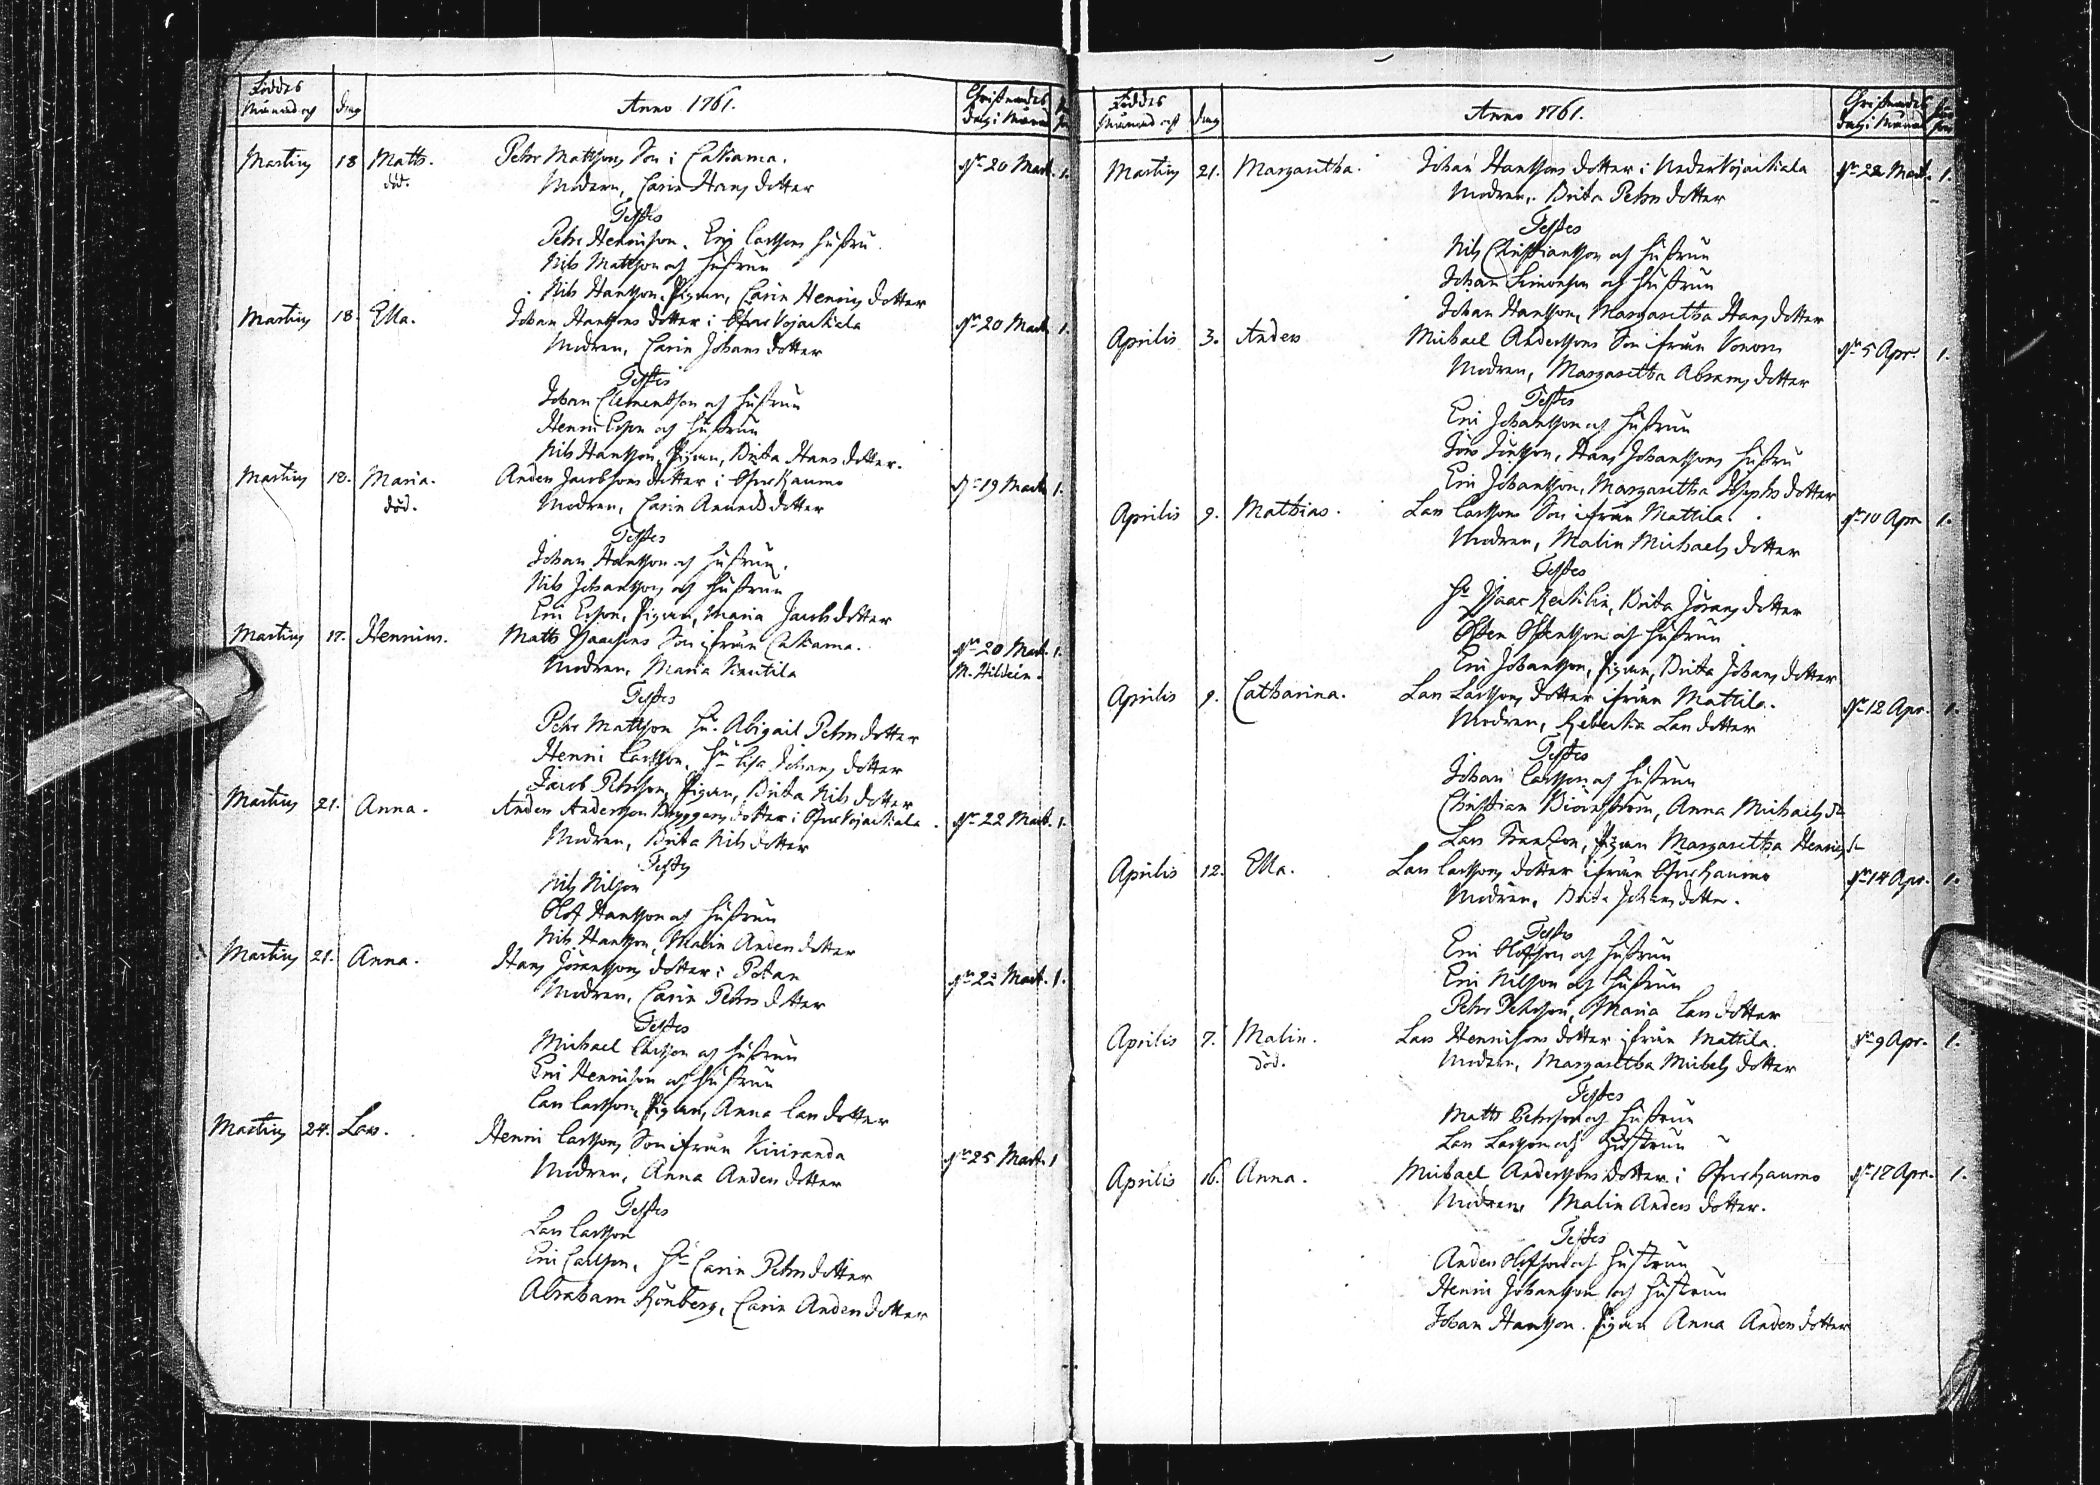 Föddes
Månad och dag
Anno 1761.
Christnades
dag i Månad
Martius 18 Matts. Pehr Mattsons Son i Cakama. 20 Mart. 1.
död. Modren, Carin Hans dotter
Testes
Pehr Henricson. Eric Larssons hustru.
Nils Mattson och hustrun
Nils Hansson, Pigan, Carin Henrics dotter
Martius 18. Ella. Johan Hanssons dotter i Öfver Vojackala 20 Mart. 1.
Modren, Carin Johans dotter
Testes
Johan Clementson och hustrun
Henric Ersson och hustrun
Nils Hansson, Pigan, Brita Hans dotter.
Martius 18. Maria. Anders Jacobsons dotter i 19 Mart. 1.
död. Modren, Carin dotter
Testes
Johan Hansson och hustrun.
Nils Johansson och hustrun
Eric Ersson, Pigan, Maria Jacobs dotter
Martius 17. Henricus. Matts Isaacsons Son ifrån Cakama. 20 Mart. 1.
Modren, Maria M. Hildeen.
Testes
Pehr Mattson hu. Abigail Pehrs dotter
Henric Larsson, Lisa Johans dotter
Jacob Pehrson, Pigan, Brita Nils dotter
Martius 21. Anna. Anders Andersson dotter i Öfver Vojackala. 22 Mart. 1.
Modren, Brita Nils dotter
Testes
Nils Nilson
Olof Hansson och hustrun
Nils Hansson, Malin Anders dotter
Martius 21. Anna. Hans Göranssons dotter i 22 Mart. 1.
Modren, Carin Pehrs dotter
Testes
Michael Larsson och hustrun
Eric Henricson och hustrun
Lars Larsson, Pigan, Anna Lars dotter
Martius 24. Lars. Henric Larssons Son ifrån Kiviranda 25 Mart. 1
Modren, Anna Anders dotter
Testes
Lars Larsson
Eric Carlson, Carin Pehrs dotter
Abraham Carin Anders dotter
Föddes
Månad och dag
Anno 1761.
Christnades
dag i Månad
Martius 21. Margaretha. Johan Hanssons dotter i Neder Vojackala 22 Mart. 1.
Modren, Brita Pehrs dotter
Testes
Nils Christiansson och hustrun
Johan Simonson och hustrun
Johan Hansson, Margaretha Hans dotter
Aprilis 3. Anders Michael Anderssons Son ifrån Vonom 5 Apr. 1.
Modren, Margaretha Abrams dotter
Testes
Eric Johansson och hustrun
Hans Johanssons hustru
Eric Johansson, Margaretha Josephs dotter
Aprilis 9. Mathias. Lars Larssons Son ifrån Mattila. 10 Apr 1.
Modren, Malin Michaels dotter
Testes
Isaac Brita Görans dotter
Östen Östensson och hustrun
Eric Johansson, Pigan, Brita Johans dotter
Aprilis 9. Catharina. Lars Larssons dotter ifrån Mattila. 12 Apr. 1.
Modren, Rebecka Lars dotter
Testes
Johan Larsson och hustrun
Christian Anna Michaels
Lars Pigan Margaretha Henrics
Aprilis 12. Ella. Lars Larssons dotter ifrån 14 Apr. 1.
Modren, Brita Johans dotter.
Testes
Eric Olofsson och hustrun
Eric Nilsson och hustrun
Pehr Pehrson, Maria Lars dotter
Aprilis 7. Malin. Lars Henricsons dotter ifrån Mattila. 9 Apr. 1.
död. Modren, Margaretha Michels dotter
Testes
Matts Pehrson och hustrun
Lars Larsson och hustrun
Aprilis 16. Anna. Michael Anderssons dotter i 17 Apr. 1.
Modren, Malin Anders dotter.
Testes
Anders Olofson och hustrun
Henric Johansson och hustrun
Johan Hansson. Pigan Anna Anders dotter